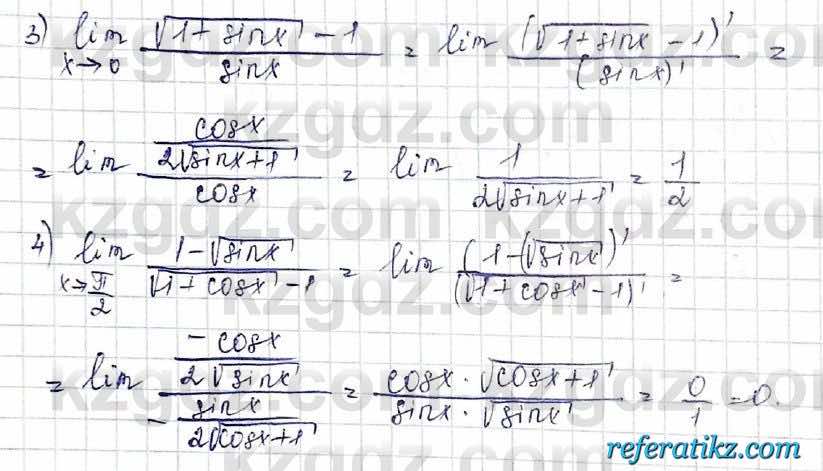 3) lim x→0 (√(1+sinx) - 1)/(sinx) = lim (√(1+sinx) - 1)'/(sinx)' =
= lim (cosx/(2√(sinx+1)))/(cosx) = lim 1/(2√(sinx+1)) = 1/2
4) lim x→π/2 (1-√sinx)/(√(1+cosx) - 1) = lim (1-(√sinx)'/(√(1+cosx) - 1)' =
= lim (-cosx/(2√sinx))/(-sinx/(2√(cosx+1))) = (cosx · √(cosx+1))/(sinx · √sinx) = 0/1 = 0.
referatikz.com